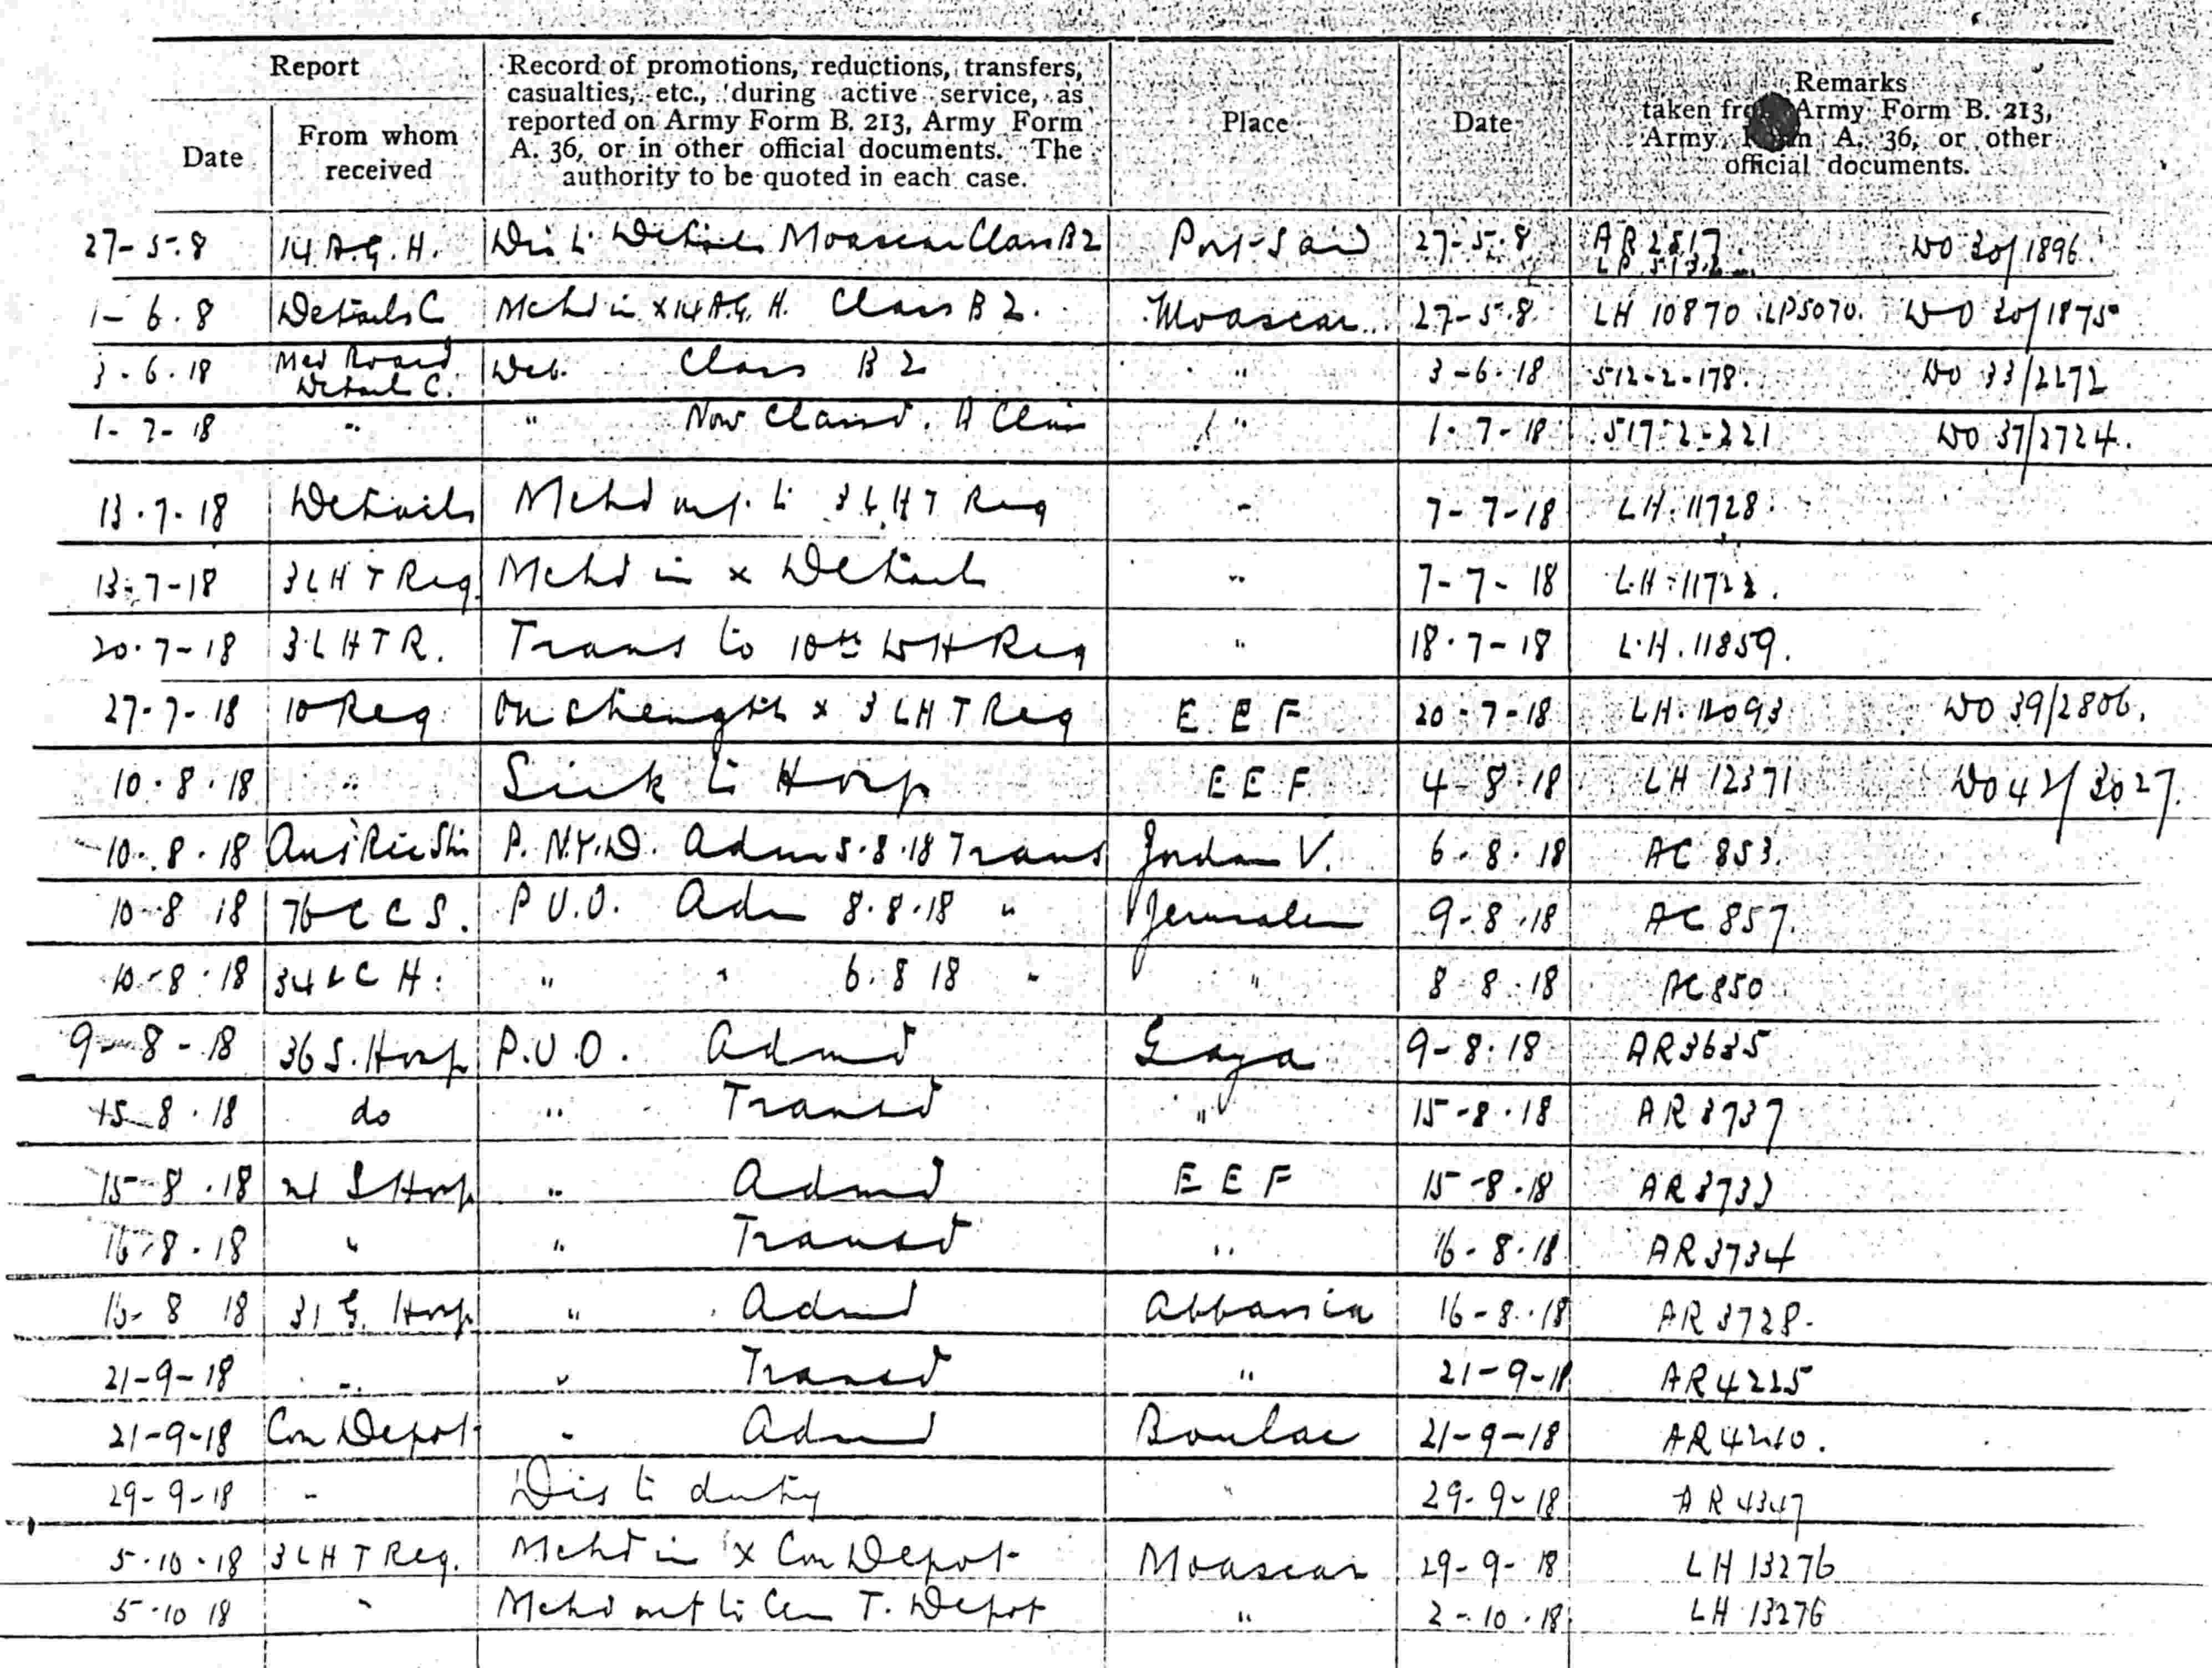 Report
Record of promotions, reductions, transfers, casualties, etc., during active service, as reported on Army Form B. 213, Army Form A. 36, or in other official documents. The authority to be quoted in each case.
Place
Date
Remarks
taken from Army Form B. 213, Army Form A. 36, or other official documents.
Date
From whom received
27-5-8 14 A.G.H. Dis to Details Moascar Class B2 Port-Said 27-5-8 AB 2517 LP 5132 WO 30/1896
1-6-8 Details C Mchd in x 14 A.G.H. Class B2. Moascar 27-5-8 LH 10870 LP5070. WO 30/1875
3-6-18 Med Board Details C. Deb. Class B2 " 3-6-18 512-2-178. WO 33/2272
1-7-18 " " Now Classd. A Class " 1-7-18 517-2-221 WO 37/2724.
13-7-18 Details Mchd out to 3 LHT Reg " 7-7-18 LH.11728.
13-7-18 3 LHT Reg. Mchd in x Details " 7-7-18 LH.11722.
20-7-18 3 LHTR. Trans to 10th LH Reg " 18-7-18 L.H.11859.
27-7-18 10 Reg On strength x 3 LHT Reg E E F 20-7-18 LH.12093 WO 39/2806.
10.8.18 " Sick to Hosp E E F 4-8-18 LH 12371 WO 42/3027.
10.8.18 Aus Rec Stn P. N.Y.D. Adm 5.8.18 Trans Jordan V. 6-8-18 AC 853.
10-8 18 76 C C S. P U.O. Adm 8.8.18 " Jerusalem 9-8-18 AC 857.
10-8-18 34 C H. " " 6.8 18 " " 8 8.18 AC 850
9-8-18 36 S. Hosp P.U.O. Admd Gaza 9-8.18 AR3635
15-8.18 do " Transd " 15-8.18 AR 3737
15-8.18 24 S Hosp " Admd E E F 15-8.18 AR 3733
16-8.18 " " Transd " 16-8.18 AR 3734
16-8 18 31 G. Hosp " Admd Abbassia 16-8.18 AR 3728-
21-9-18 " " Transd " 21-9-18 AR 4225
21-9-18 Con Depot " Admd Boulac 21-9-18 AR 4210.
29-9-18 " Dis to duty " 29-9-18 AR 4347
5-10-18 3 LHT Reg. Mchd in x Con Depot Moascar 29-9-18 LH 13276
5-10 18 " Mchd out to Cen T. Depot " 2-10-18 LH 13276